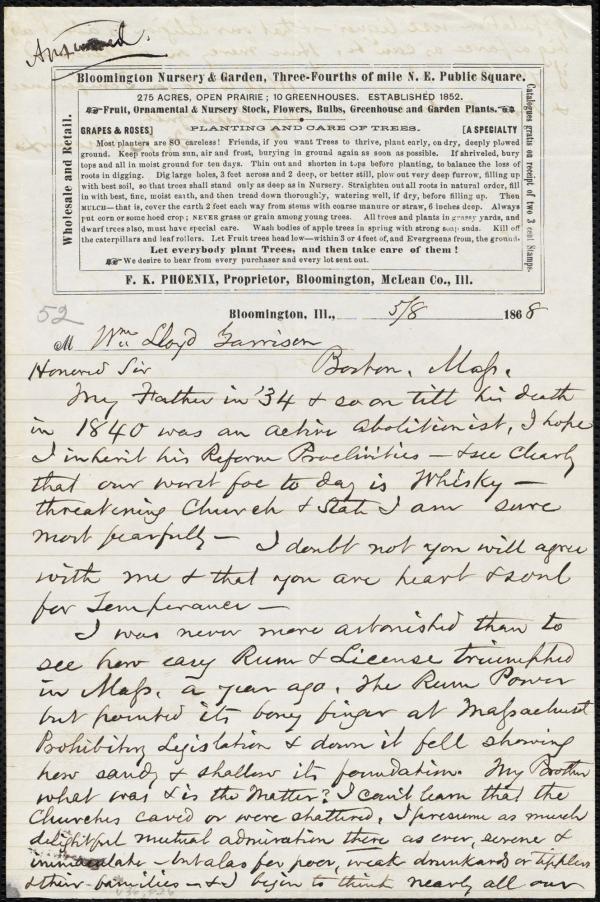 Answered.
Bloomington Nursery & Garden, Three-Fourths of mile N. E. Public Square.
275 ACRES, OPEN PRAIRIE; 10 GREENHOUSES. ESTABLISHED 1852.
Fruit, Ornamental & Nursery Stock, Flowers, Bulbs, Greenhouse and Garden Plants.
GRAPES & ROSES] PLANTING AND CARE OF TREES. [A SPECIALTY
Most planters are SO careless! Friends, if you want Trees to thrive, plant early, on dry, deeply plowed
ground. Keep roots from sun, air and frost, burying in ground again as soon as possible. If shriveled, bury
tops and all in moist ground for ten days. Thin out and shorten in tops before planting, to balance the loss of
roots in digging. Dig large holes, 3 feet across and 2 deep, or better still, plow out very deep furrow, filling up
with best soil, so that trees shall stand only as deep as in Nursery. Straighten out all roots in natural order, fill
in with best, fine, moist earth, and then tread down thoroughly, watering well, if dry, before filling up. Then
MULCH—that is, cover the earth 2 feet each way from stems with coarse manure or straw, 6 inches deep. Always
put corn or some hoed crop; NEVER grass or grain among young trees. All trees and plants in grassy yards, and
dwarf trees also, must have special care. Wash bodies of apple trees in spring with strong soap suds. Kill off
the caterpillars and leaf rollers. Let Fruit trees head low—within 3 or 4 feet of, and Evergreens from, the ground.
Let everybody plant Trees, and then take care of them!
We desire to hear from every purchaser and every lot sent out.
Wholesale and Retail.
Catalogues gratis on receipt of two 3 cent Stamps.
F. K. PHOENIX, Proprietor, Bloomington, McLean Co., Ill.
52
Bloomington, Ill., 5/8 1868
M Wm Lloyd Garrison
Honored Sir Boston, Mass.
My Father in '34 & so on till his death
in 1840 was an active abolitionist, I hope
I inherit his Reform Proclivities — & see clearly
that our worst foe to day is Whisky —
threatening Church & State I am sure
most fearfully — I doubt not you will agree
with me & that you are heart & soul
for Temperance —
I was never more astonished than to
see how easy Rum & License triumphed
in Mass. a year ago. The Rum Power
but pointed its bony finger at Massachust
Prohibitory Legislation & down it fell showing
how sandy & shallow its foundation. My Brother
what was & is the matter? I can't learn that the
Churches caved or were shattered, I presume as much
delightful mutual admiration there as ever, serene &
immaculate — but alas for poor, weak drunkards or tipplers
& their families — & I begin to think nearly all our